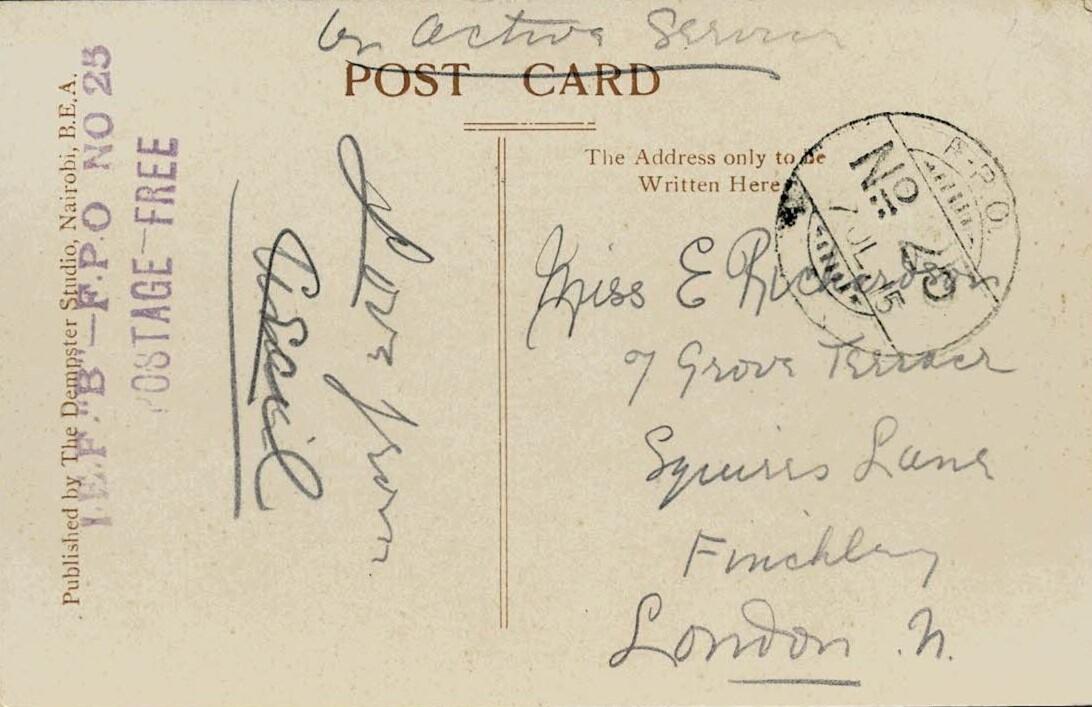 on Active Service
POST CARD
The Address only to be
Written Here
F.P.O.
No 25
7 JL 15
Miss E Richardson
7 Grove Terrace
Squires Lane
Finchley
London N.
Love from
Published by The Dempster Studio, Nairobi, B.E.A.
I.E.F. "B" - F.P.O NO 25
POSTAGE-FREE